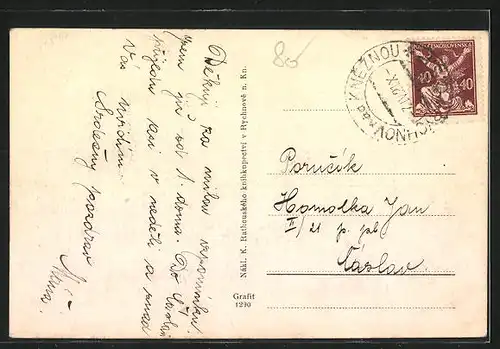 Děkuji za milou vzpomínku.
jsem již od 1. doma. Do Čáslavi
přijedu asi v neděli a snad
Vás uvidím.
Srdečný pozdrav
80
Nákl. K. Rathouského knihkupectví v Rychnově n. Kn.
Grafit
1230
RYCHNOV nad KNĚŽNOU
ČESKOSLOVENSKÁ
40 40
Poručík
Homolka Jan
II/21 p. pl.
Čáslav.